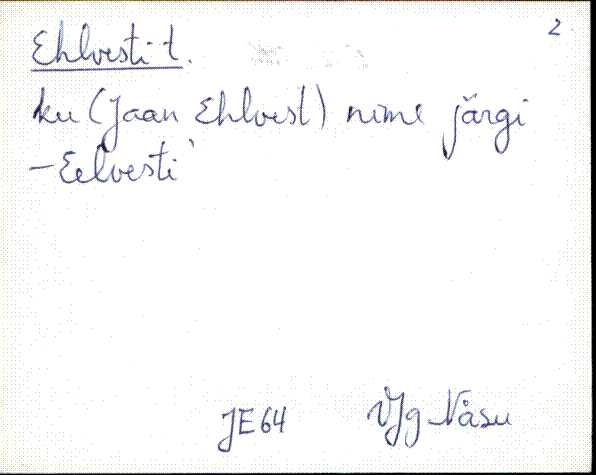 2
Ehlvesti t.
ku (Jaan Ehlvest) nime järgi
– Eelvesti
JE64 VJg Nåsu